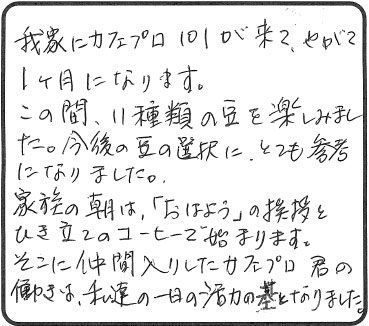 我家にカフェプロ101が来て、やがて
1ヶ月になります。
この間、11種類の豆を楽しみまし
た。今後の豆の選択に、とても参考
になりました。
家族の朝は、「おはよう」の挨拶と
ひき立てのコーヒーで始まります。
そこに仲間入りしたカフェプロ君の
働きは、私達の一日の活力の基となりました。